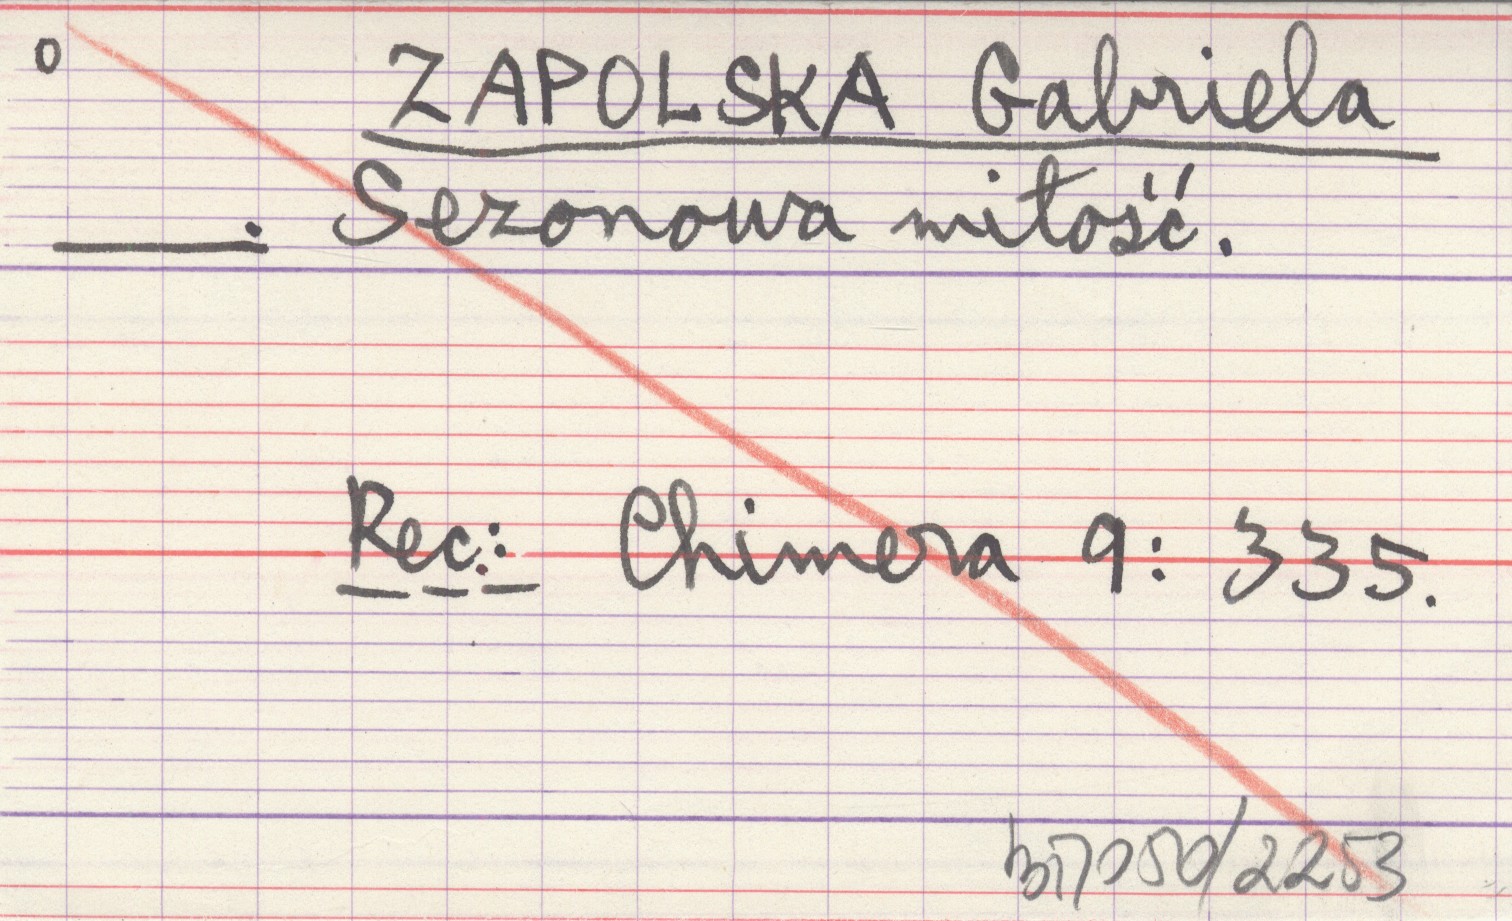 o ZAPOLSKA Gabriela
______. Sezonowa miłość.
Rec: Chimera 9: 335.
/2253